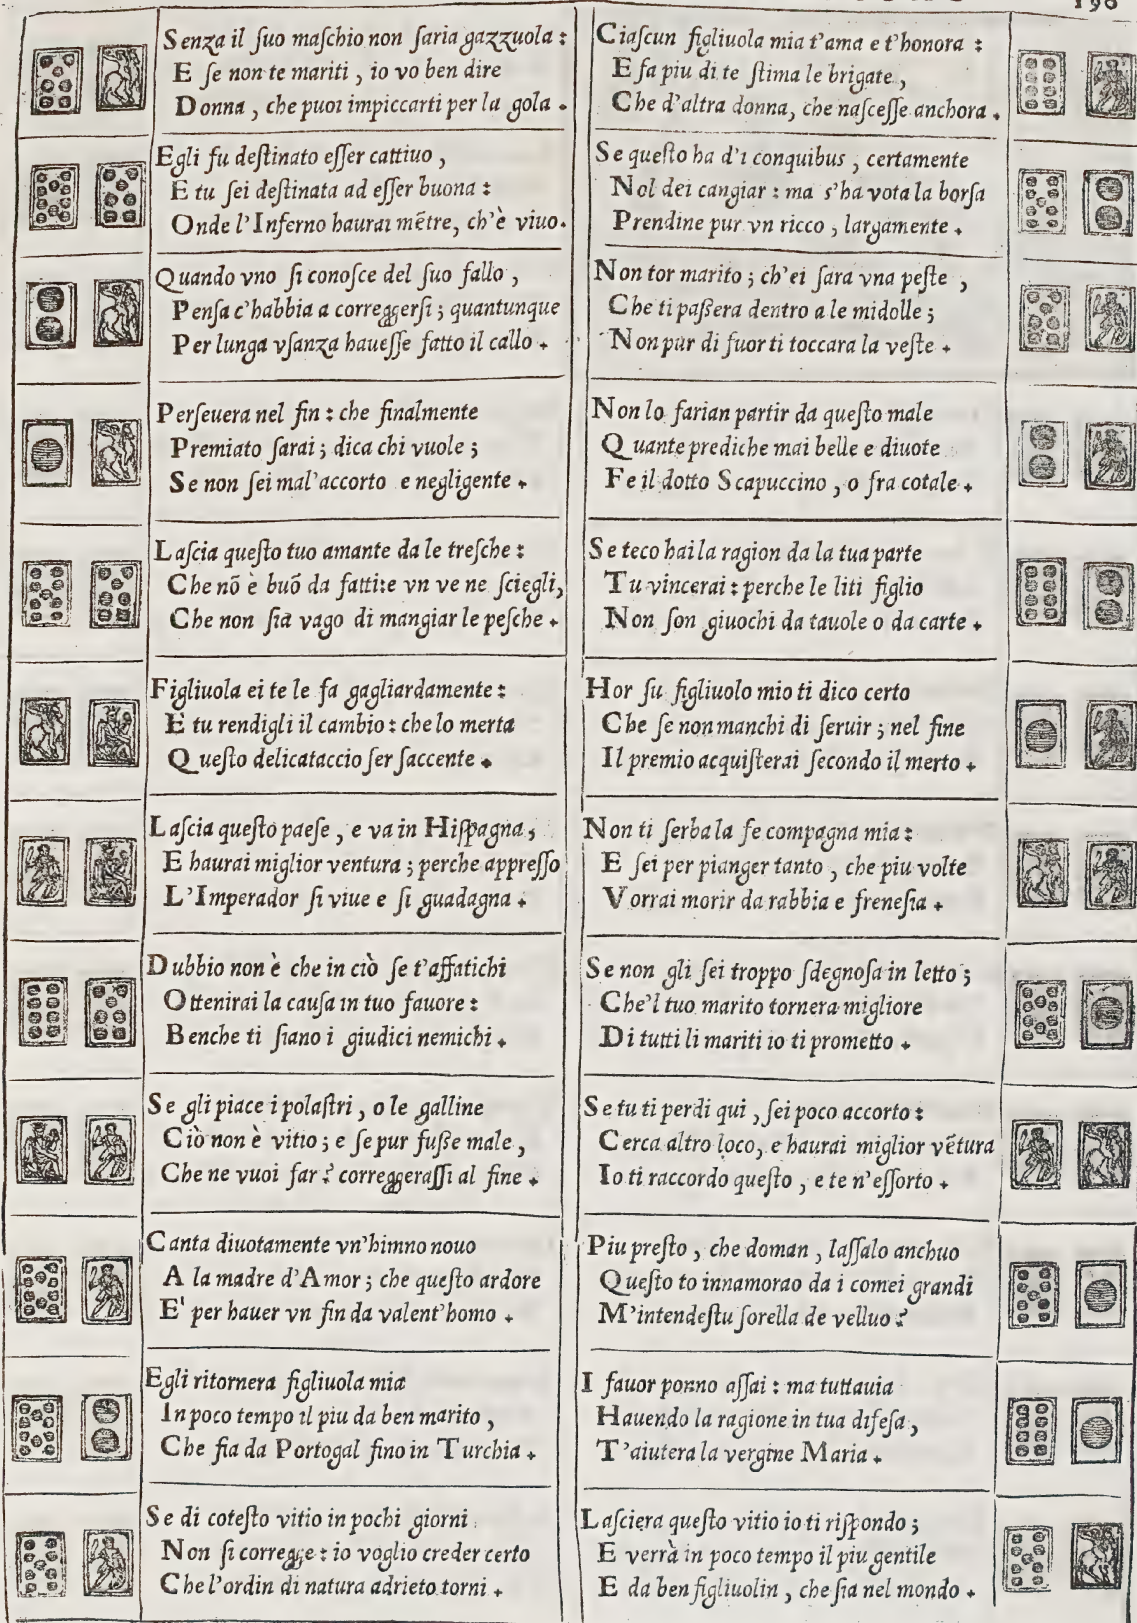 198
Senza il ſuo maſchio non ſaria gazzuola :
E ſe non te mariti , io vo ben dire
Donna , che puoi impiccarti per la gola .
Egli fu deſtinato eſſer cattiuo ,
E tu ſei deſtinata ad eſſer buona :
Onde l'Inferno haurai mẽtre, ch'è viuo.
Quando vno ſi conoſce del ſuo fallo ,
Penſa c'habbia a correggerſi ; quantunque
Per lunga vſanza haueſſe fatto il callo .
Perſeuera nel fin : che finalmente
Premiato ſarai ; dica chi vuole ;
Se non ſei mal'accorto e negligente .
Laſcia queſto tuo amante da le treſche :
Che nõ è buõ da fatti:e vn ve ne ſciegli,
Che non ſia vago di mangiar le peſche .
Figliuola ei te le fa gagliardamente :
E tu rendigli il cambio : che lo merta
Queſto delicataccio ſer ſaccente .
Laſcia queſto paeſe , e va in Hiſpagna ,
E haurai miglior ventura ; perche appreſſo
L'Imperador ſi viue e ſi guadagna .
Dubbio non è che in ciò ſe t'affatichi
Ottenirai la cauſa in tuo fauore :
Benche ti ſiano i giudici nemichi .
Se gli piace i polaſtri , o le galline
Ciò non è vitio ; e ſe pur fuſſe male ,
Che ne vuoi far ? correggeraſſi al fine .
Canta diuotamente vn'himno nouo
A la madre d'Amor ; che queſto ardore
E' per hauer vn fin da valent'homo .
Egli ritornera figliuola mia
In poco tempo il piu da ben marito ,
Che ſia da Portogal fino in Turchia .
Se di coteſto vitio in pochi giorni
Non ſi corregge : io voglio creder certo
Che l'ordin di natura adrieto torni .
Ciaſcun figliuola mia t'ama e t'honora :
E fa piu di te ſtima le brigate ,
Che d'altra donna, che naſceſſe anchora .
Se queſto ha d'i conquibus , certamente
Nol dei cangiar : ma s'ha vota la borſa
Prendine pur vn ricco , largamente .
Non tor marito ; ch'ei ſara vna peſte ,
Che ti paſſera dentro a le midolle ;
Non pur di fuor ti toccara la veſte .
Non lo farian partir da queſto male
Quante prediche mai belle e diuote
Fe il dotto Scapuccino , o fra cotale .
Se teco hai la ragion da la tua parte
Tu vincerai : perche le liti figlio
Non ſon giuochi da tauole o da carte .
Hor ſu figliuolo mio ti dico certo
Che ſe non manchi di ſeruir ; nel fine
Il premio acquiſterai ſecondo il merto .
Non ti ſerba la fe compagna mia :
E ſei per pianger tanto , che piu volte
Vorrai morir da rabbia e freneſia .
Se non gli ſei troppo ſdegnoſa in letto ;
Che'l tuo marito tornera migliore
Di tutti li mariti io ti prometto .
Se tu ti perdi qui , ſei poco accorto :
Cerca altro loco, e haurai miglior vẽtura
Io ti raccordo queſto , e te n'eſſorto .
Piu preſto , che doman , laſſalo anchuo
Queſto to innamorao da i comei grandi
M'intendeſtu ſorella de velluo ?
I fauor ponno aſſai : ma tuttauia
Hauendo la ragione in tua difeſa ,
T'aiutera la vergine Maria .
Laſciera queſto vitio io ti riſpondo ;
E verrà in poco tempo il piu gentile
E da ben figliuolin , che ſia nel mondo .